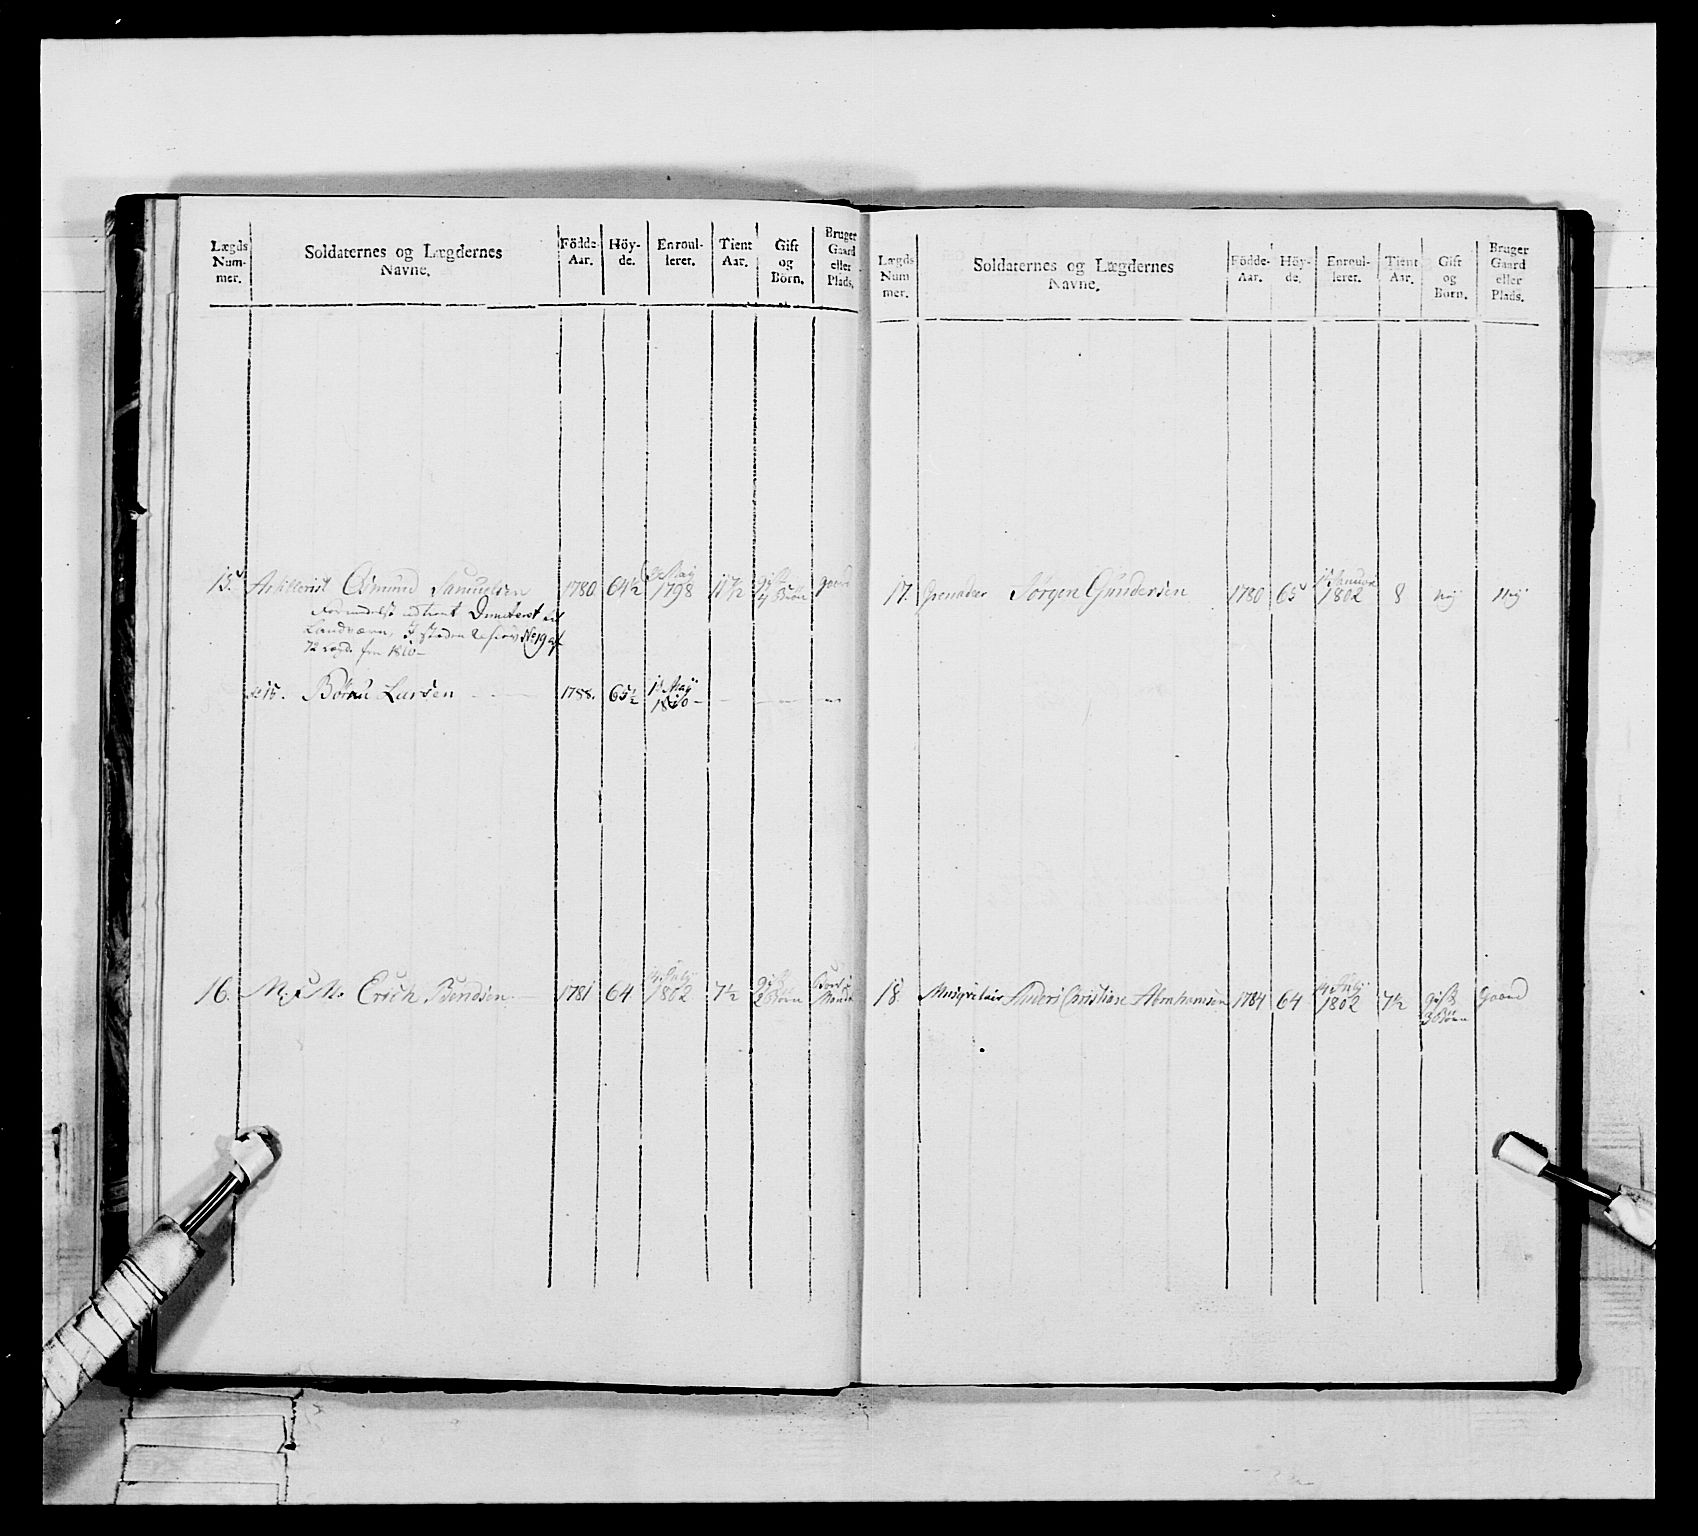 Lægds Num- mer.
Soldaternes og Lægdernes Navne.
Födde Aar.
Höy- de.
Enroul- leret.
Tient Aar.
Gift og Börn.
Bruger Gaard eller Plads.
15. Artillerist Osmund Samuelsen 1780 64½ May 1798 11½ gift 4 Börn gaard
Landværn, No 19 af
fra 1810
15. Larsen 1788. 65½ 1 May 1810
16. Erich Bendsen 1781 64 14 July 1802 7½ gift 2 Börn
Lægds Num mer.
Soldaternes og Lægdernes Navne.
Födde- Aar.
Höy- de.
Enroul- leret.
Tient Aar.
Gift og Börn.
Bruger Gaard eller Plads.
17. Grenadeer Jörgen Gundersen 1780 65 Januar 1802 8 Nej Nej
18. Musqvetair Anders Christian Abrahamsen 1784 64 14 July 1802 7½ gift 3 Börn Gaard